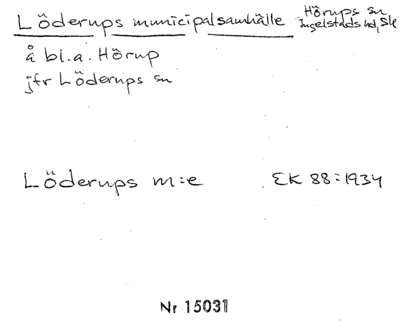 Löderups municipalsamhälle Hörups sn
Ingelstads hd, Sk
å bl.a. Hörup
jfr Löderups sn
Löderups m:e EK 88:1934
Nr 15031